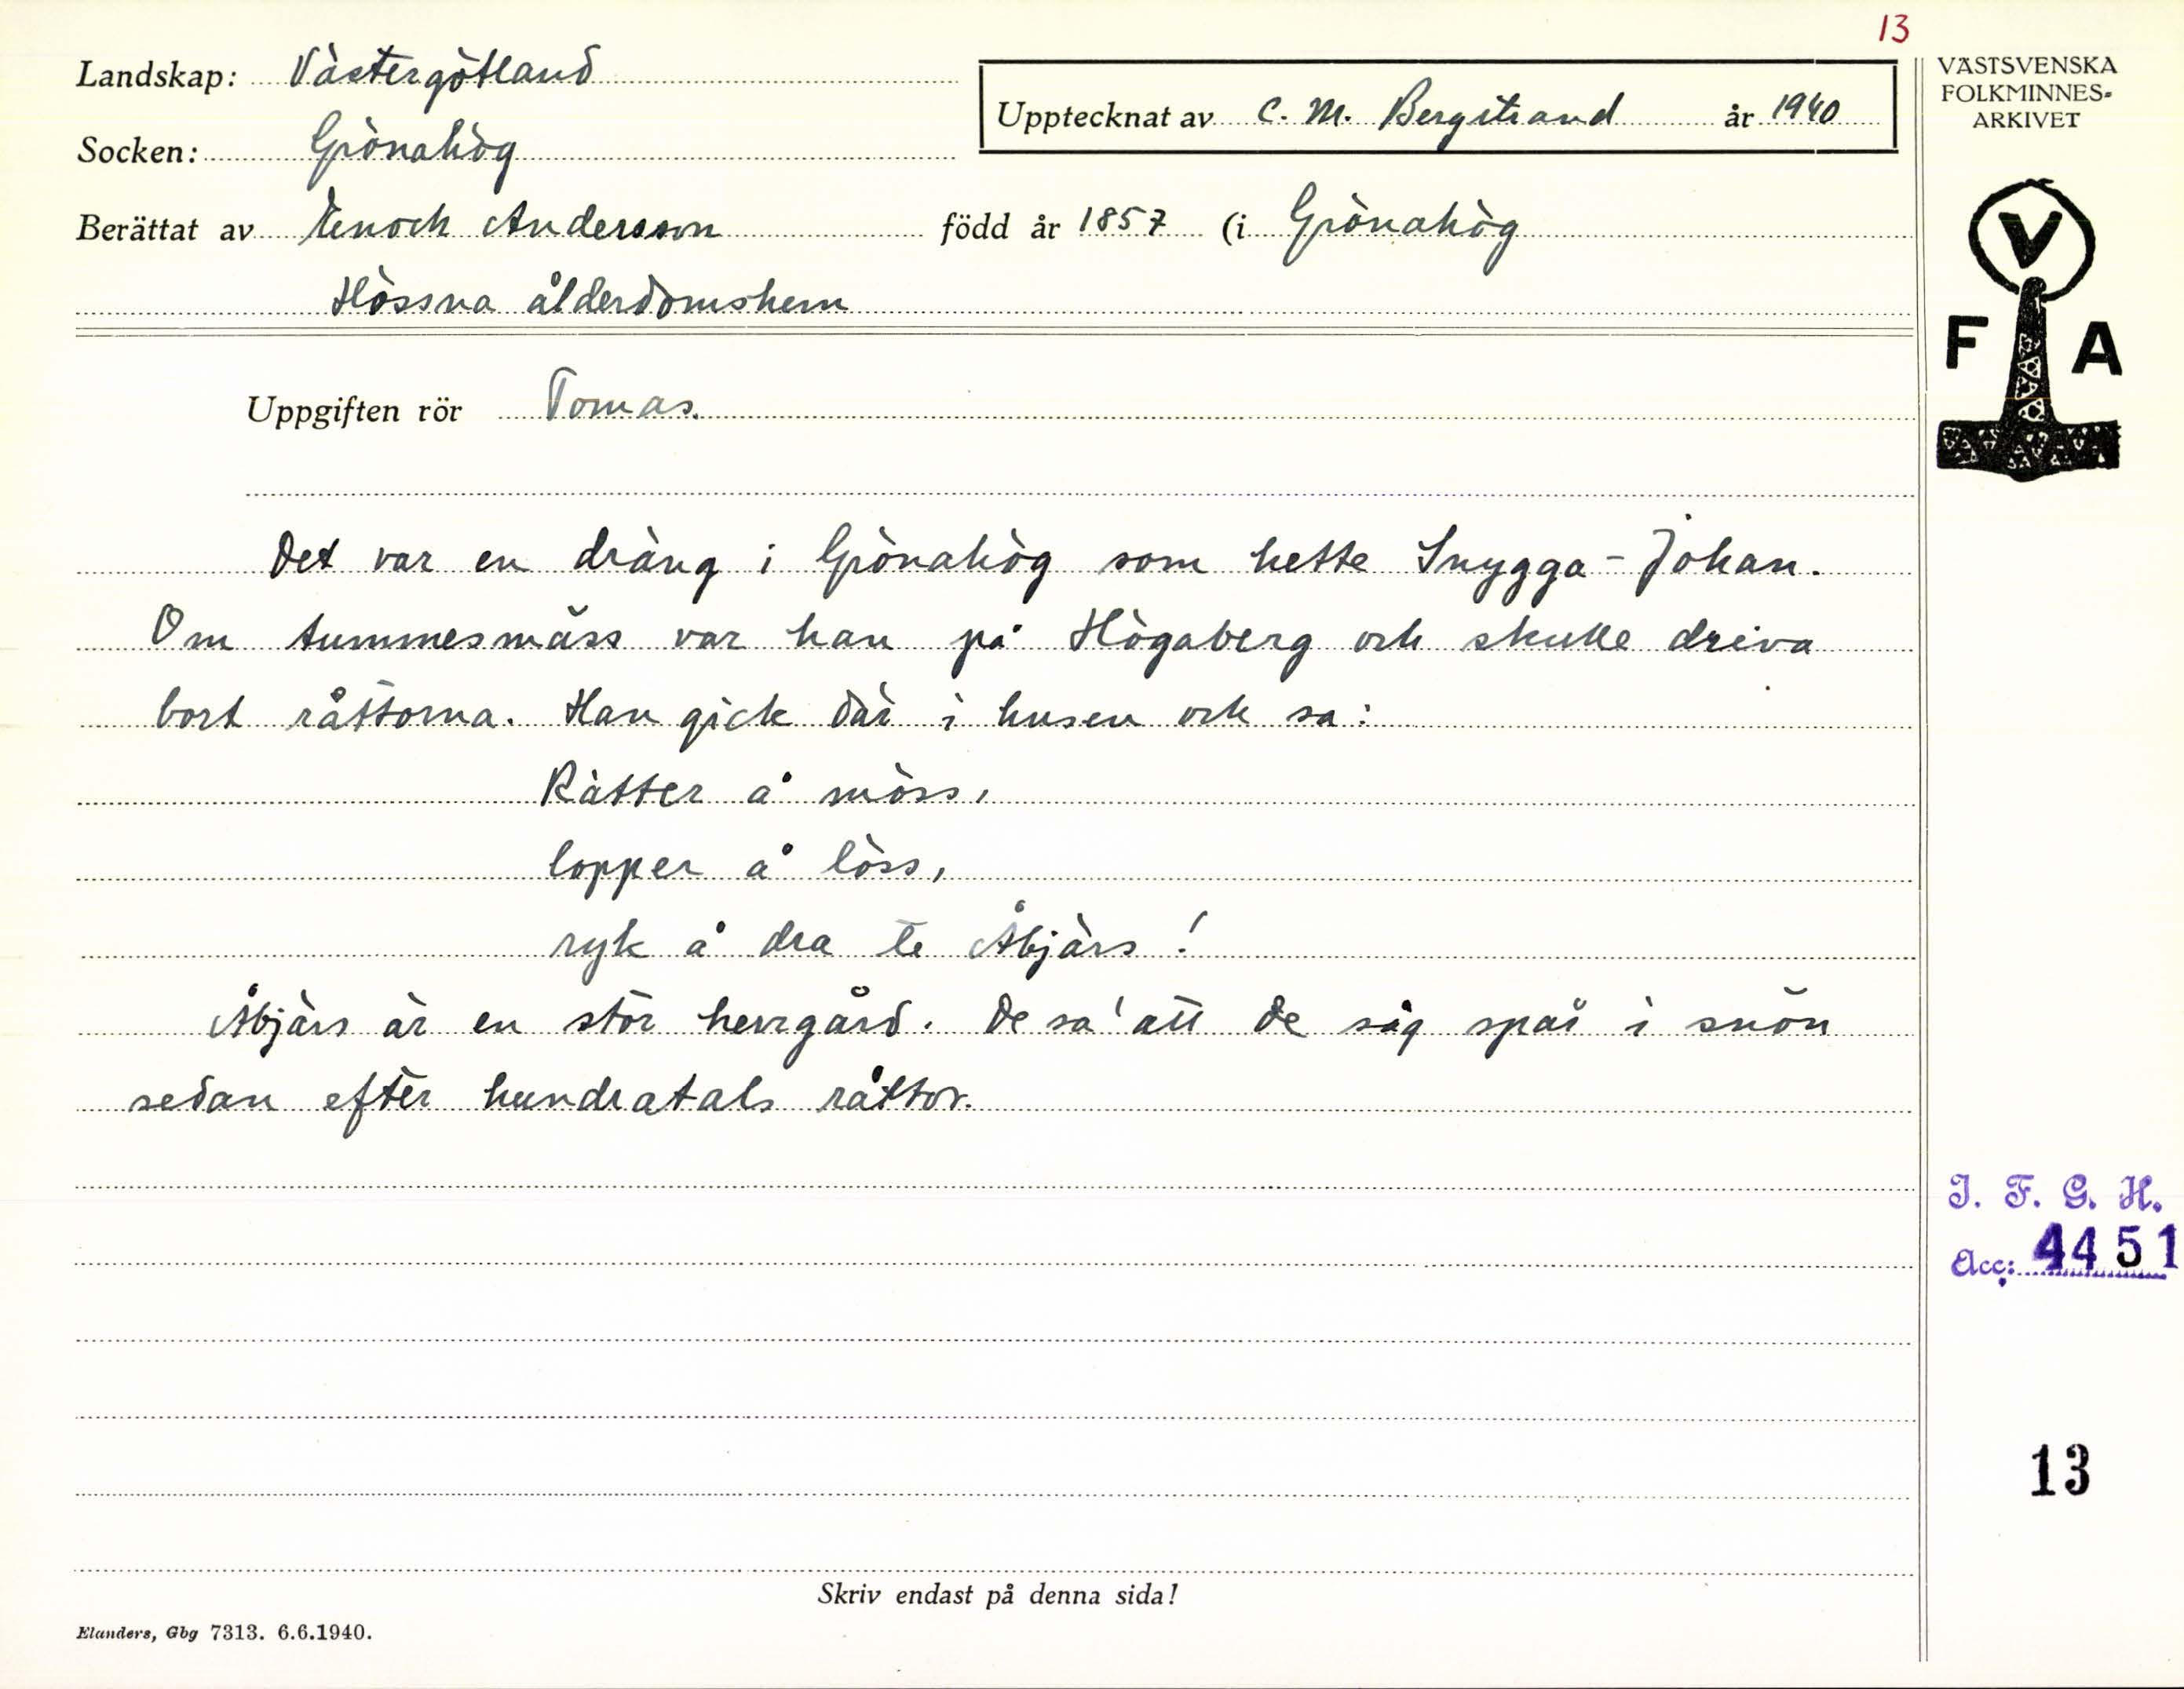 13
Landskap: Västergötland
Upptecknat av C. M. Bergstrand år 1940
Socken: Grönahög
Berättat av Enoch Andersson född år 1857 (i Grönahög
Hössna ålderdomshem
VÄSTSVENSKA
FOLKMINNES-
ARKIVET
V
F A
Uppgiften rör Tomas.
Det var en dräng i Grönahög som hette Snygga-Johan.
Om tummesmäss var han på Högaberg och skulle driva
bort råttorna. Han gick där i husen och sa:
Råtter å möss,
lopper å löss,
ryk å dra te Åbjärs!
Åbjärs är en stor herrgård. De sa' att de såg spår i snön
sedan efter hundratals råttor.
I. F. G. H.
Acc: 4451
13
Skriv endast på denna sida!
Elanders, Gbg 7313. 6.6.1940.